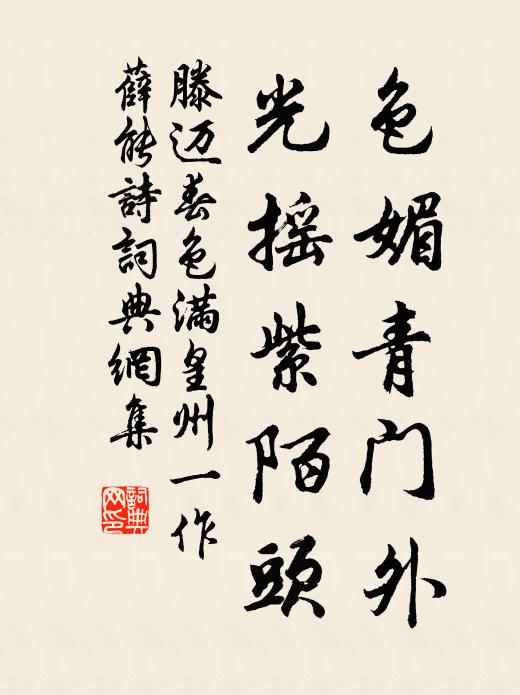 色媚青门外
光摇紫陌頭
滕迈春色满皇州一作
薛能詩詞典網集
詞典網印